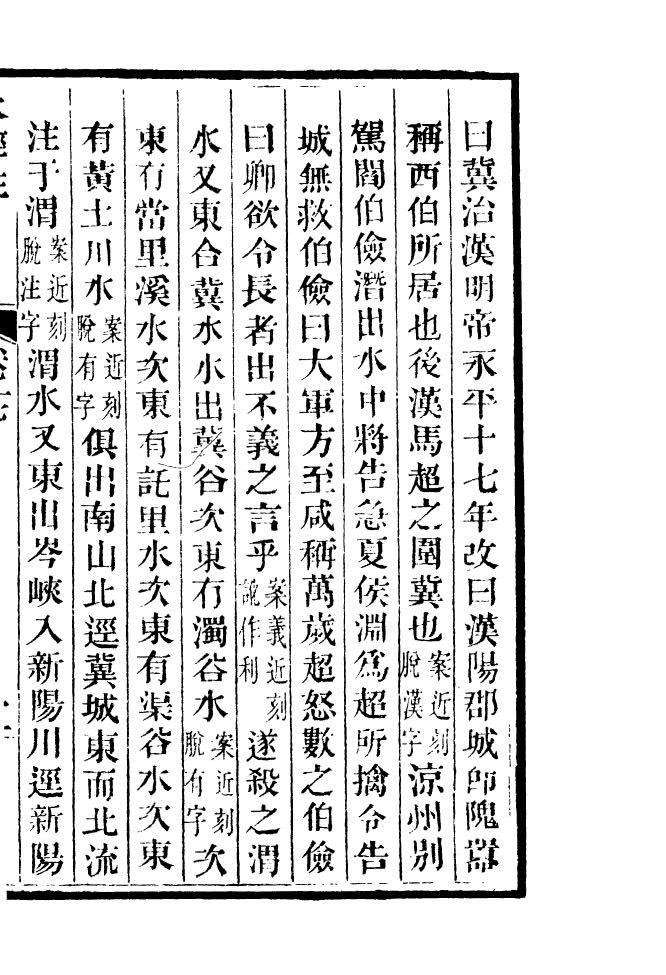 曰冀治漢明帝永平十七年改曰漢陽郡城即隗囂
稱西伯所居也後漢馬超之圍冀也案近刻脫漢字涼州別
駕閻伯儉潛出水中將告急夏侯淵爲超所擒令告
城無救伯儉曰大軍方至咸稱萬歲超怒數之伯儉
曰卿欲令長者出不義之言乎案義近刻訛作利遂殺之渭
水又東合冀水水出冀谷次東有濁谷水案近刻脫有字次
東有當里溪水次東有託里水次東有渠谷水次東
有黃土川水案近刻脫有字俱出南山北逕冀城東而北流
注于渭案近刻脫注字渭水又東出岑峽入新陽川逕新陽
水經注